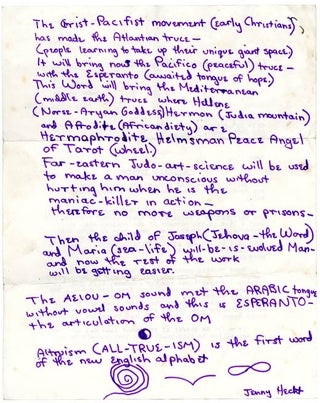 The Crist-Pacifist movement (early Christians)
has made the Atlantian truce —
(people learning to take up their unique giant space)
It will bring now the Pacifico (peaceful) truce —
with the Esperanto (awaited tongue of hope)
This Word will bring the Mediterranean
(middle earth) truce where Hellene
(Norse-Aryan Goddess) Hermon (Judia mountain)
and Afrodite (Africandiety) are
Hermaphrodite, Helmsman Peace Angel
of Tarot (wheel)
Far-eastern Judo-art-science will be used
to make a man unconscious without
hurting him when he is the
maniac-killer in action —
therefore no more weapons or prisons—
Then the child of Joseph (Jehova-the Word)
and Maria (sea-life) will-be-is-evolved Man-
and now the rest of the work
will be getting easier.
The AEIOU-OM sound met the ARABIC tongue
without vowel sounds and this is ESPERANTO-
the articulation of the OM
Altruism (ALL-TRUE-ISM) is the first word
of the new english alphabet
Jenny Hecht